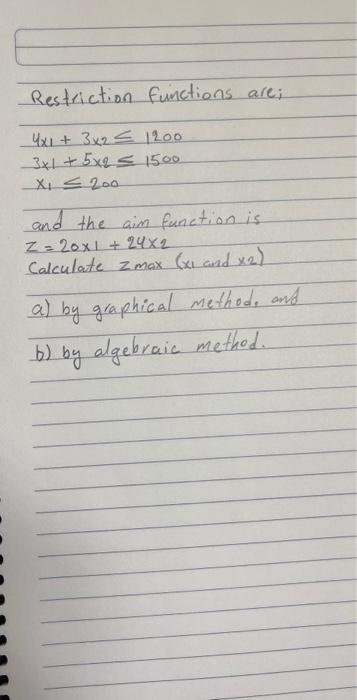 Restriction functions are;
4x1 + 3x2 ≤ 1200
3x1 + 5x2 ≤ 1500
x1 ≤ 200
and the aim function is
Z = 20x1 + 24x2
Calculate z max (x1 and x2)
a) by graphical method. and
b) by algebraic method.